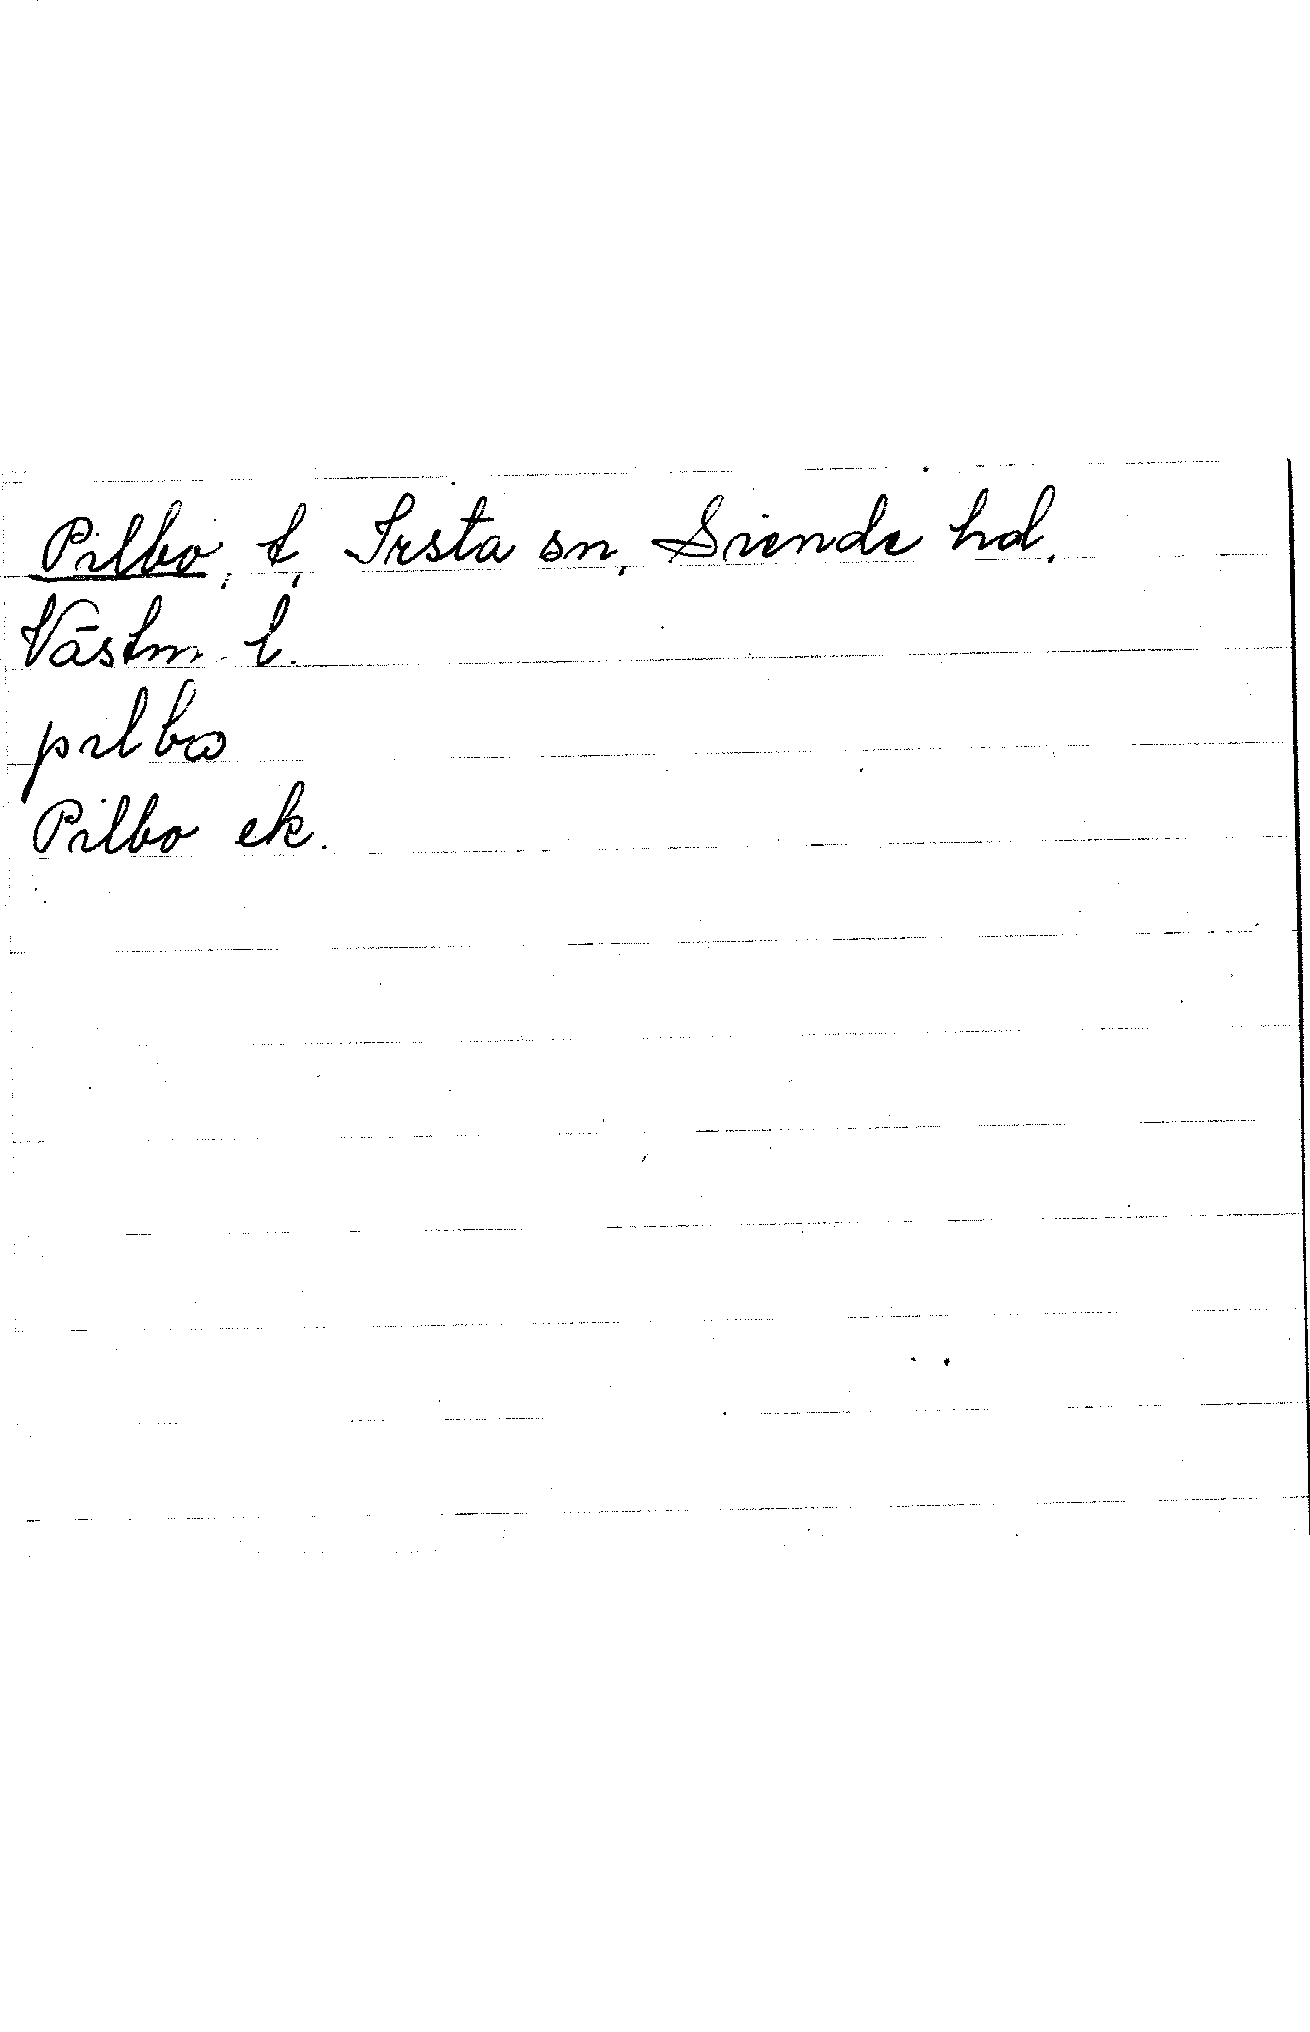 Pilbo, t, Irsta sn, Siende hd.
Västm. l.
pilbω
Pilbo ek.